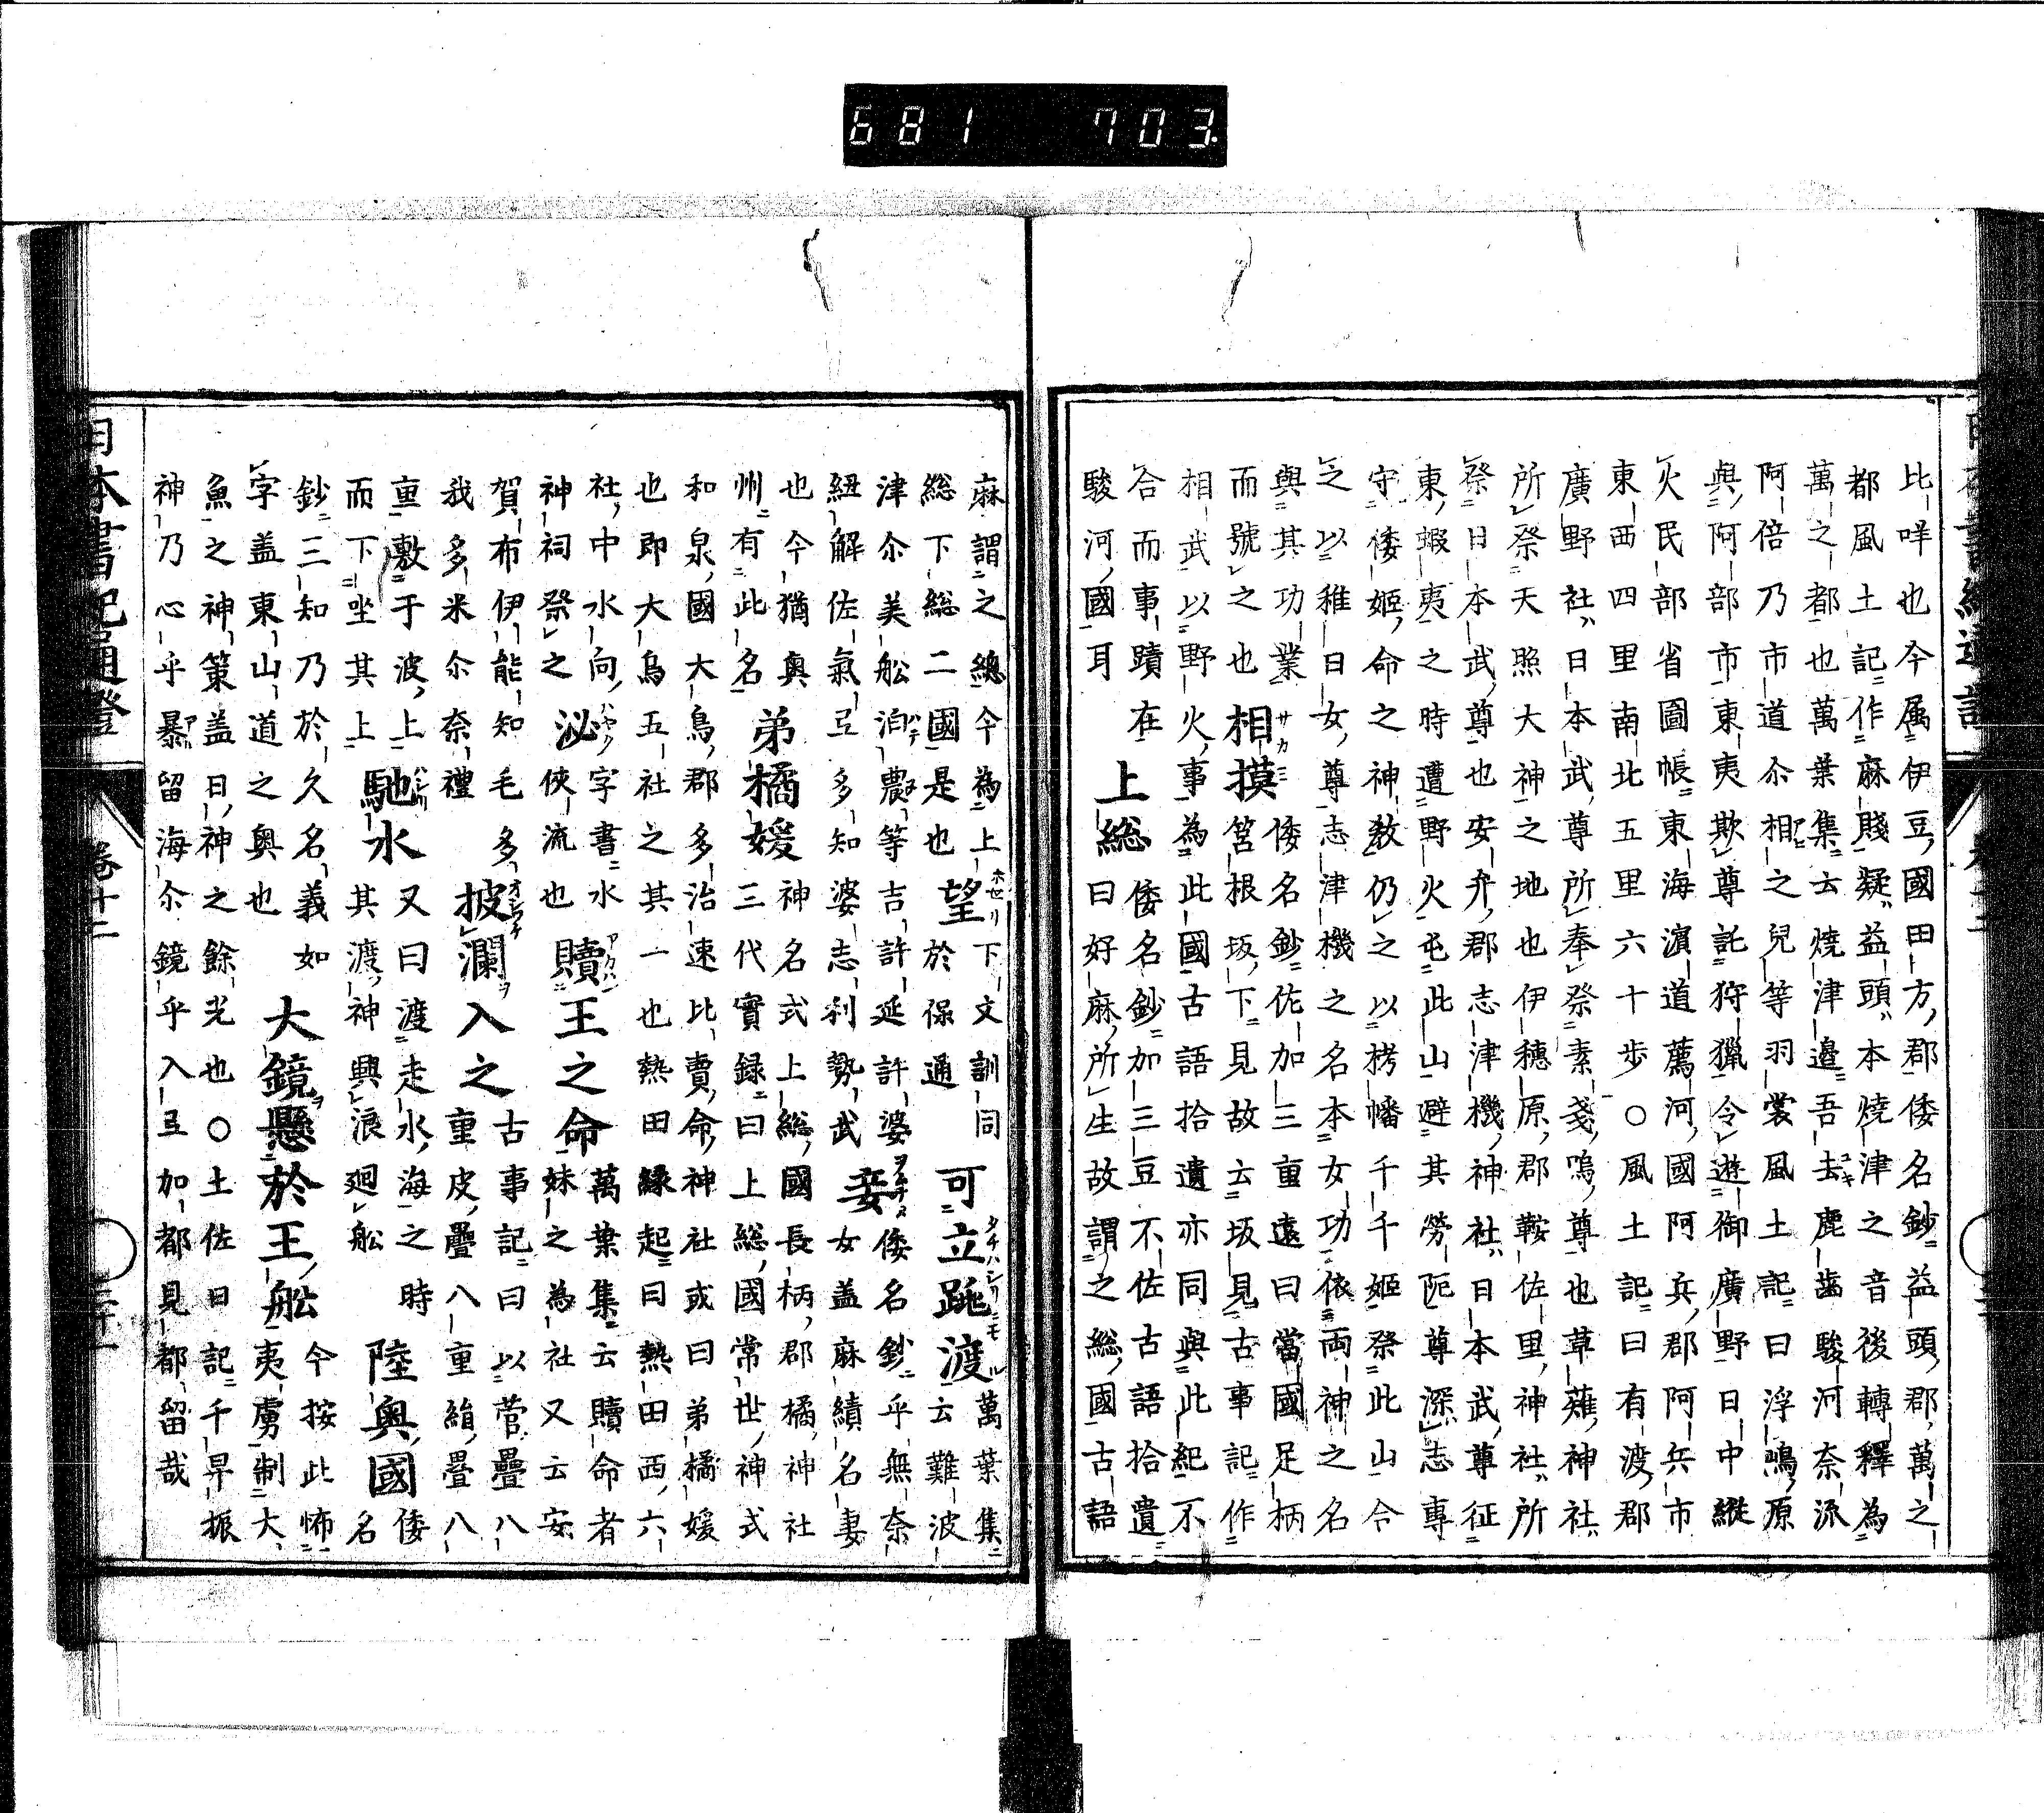 681 703
比咩也今属伊豆國田方郡倭名鈔益頭郡萬之
都風土記作麻賤疑益頭本燒津之音後轉釋為
萬之都也萬葉集云燒津邉吾去鹿齒駿河奈流
阿倍乃市道尒相之兒等羽裳風土記曰浮嶋原
與阿部市東夷欺尊託狩獵令遊御廣野日中縱
火民部省圖帳東海濵道薦河國阿兵郡阿兵市
東西四里南北五里六十歩○風土記曰有渡郡
廣野社日本武尊所奉祭素戔嗚尊也草薙神社
所祭天照大神之地也伊穗原郡鞍佐里神社所
祭日本武尊也安弁郡志津機神社日本武尊征
東蝦夷之時遭野火屯此山避其勞阨尊深志專
守倭姬命之神敎仍之以栲幡千千姬祭此山令
之以稚日女尊志津機之名本女功依両神之名
與其功業倭名鈔佐加三重遠曰當國足柄
而號之也相摸筥根坂下見故云坂見古事記作
相武以野火事為此國古語拾遺亦同與此紀不
合而事蹟在倭名鈔加三豆不佐古語拾遺
駿河國耳上総曰好麻所生故謂之総國古語
麻謂之總今為上下文訓同萬葉集
総下総二國是也望於保通可立跳渡云難波
津尒美舩泊農等吉許延許婆妾倭名鈔乎無奈
紐解佐氣弖多知婆志利勢武女盖麻績名妻
也今猶奧弟橘媛神名式上総國長柄郡橘神社
州有此名三代實録曰上総國常世神式
和泉國大鳥郡多治速比賣命神社或曰弟橘媛
也即大鳥五社之其一也熱田縁起曰熱田西六
社中水向泌字書水贖王之命萬葉集云贖命者
神祠祭之俠流也妹之為社又云安
賀布伊能知毛多披瀾入之古事記曰以菅疊八
我多米尒奈禮重皮疊八重絹疊八
重敷于波上馳水又曰渡走水海之時陸奧國倭
而下坐其上其渡神興浪廻舩名
鈔三知乃於久名義如大鏡懸於王舩今按此怖
字盖東山道之奧也夷虜制大
魚之神策盖日神之餘光也○土佐日記千早振
神乃心乎暴留海尒鏡乎入弖加都見都留哉
日本書紀通證 卷十二